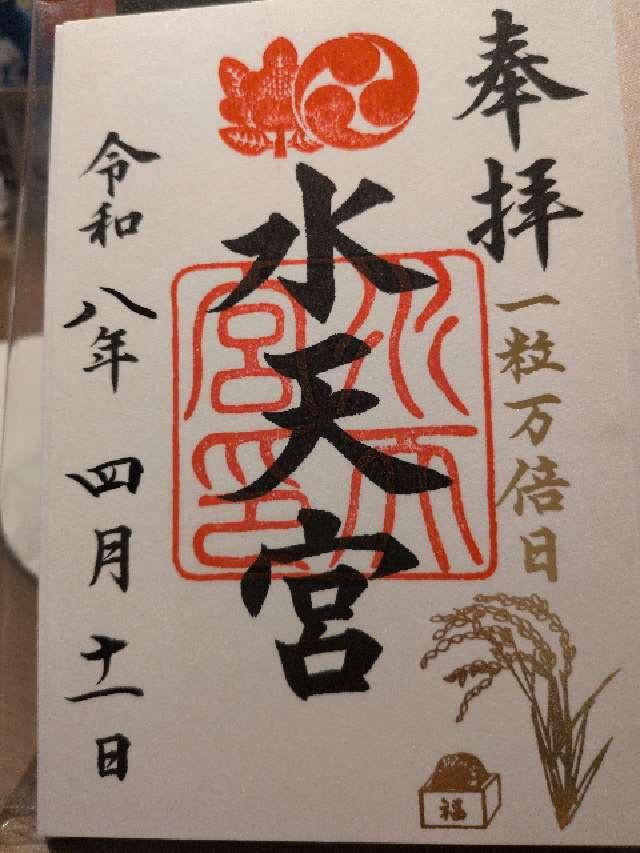 奉拝
一粒万倍日
水天宮
水天宮印
令和八年四月十一日
福